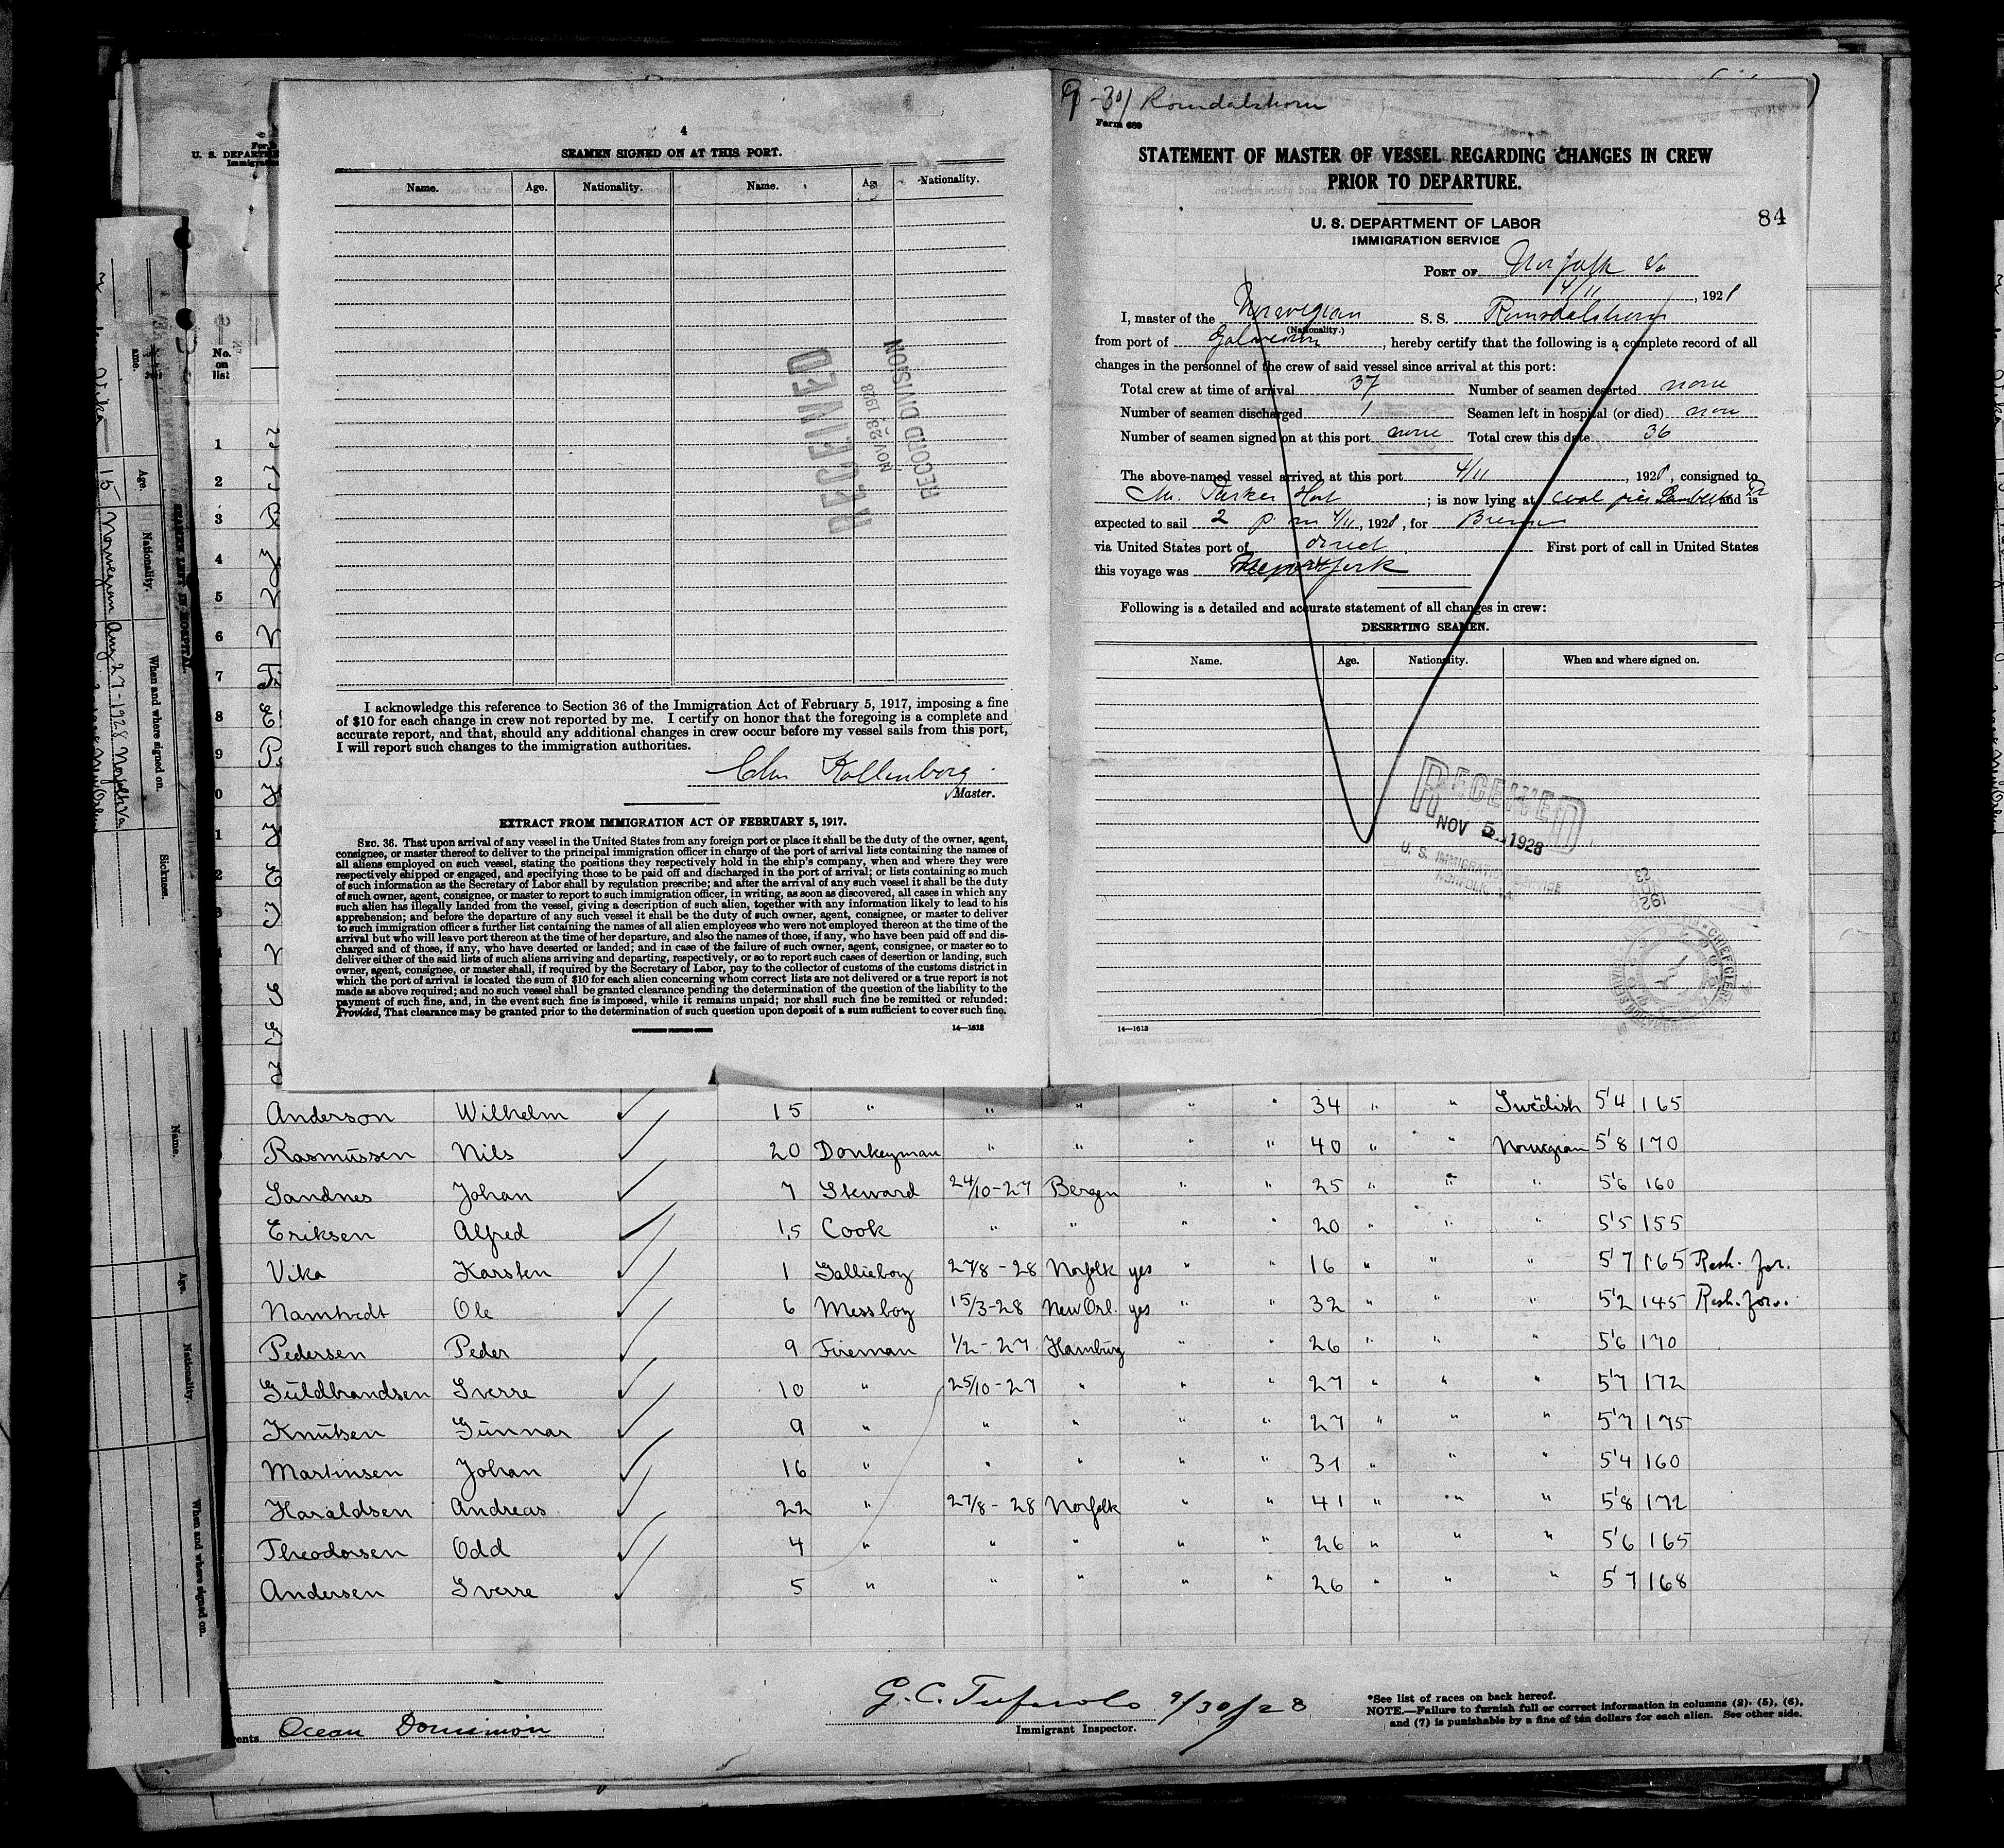 4
SEAMEN SIGNED ON AT THIS PORT.
Name. Age. Nationality. Name. Ag Nationality.
RECEIVED
NOV 23 1928
RECORD DIVISION
I acknowledge this reference to Section 36 of the Immigration Act of February 5, 1917, imposing a fine
of $10 for each change in crew not reported by me. I certify on honor that the foregoing is a complete and
accurate report, and that, should any additional changes in crew occur before my vessel sails from this port,
I will report such changes to the immigration authorities.
Kollenborg
Master.
EXTRACT FROM IMMIGRATION ACT OF FEBRUARY 5, 1917.
SEC. 36. That upon arrival of any vessel in the United States from any foreign port or place it shall be the duty of the owner, agent,
consignee, or master thereof to deliver to the principal immigration officer in charge of the port of arrival lists containing the names of
all aliens employed on such vessel, stating the positions they respectively hold in the ship's company, when and where they were
respectively shipped or engaged, and specifying those to be paid off and discharged in the port of arrival; or lists containing so much
of such information as the Secretary of Labor shall by regulation prescribe; and after the arrival of any such vessel it shall be the duty
of such owner, agent, consignee, or master to report to such immigration officer, in writing, as soon as discovered, all cases in which any
such alien has illegally landed from the vessel, giving a description of such alien, together with any information likely to lead to his
apprehension; and before the departure of any such vessel it shall be the duty of such owner, agent, consignee, or master to deliver
to such immigration officer a further list containing the names of all alien employees who were not employed thereon at the time of the
arrival but who will leave port thereon at the time of her departure, and also the names of those, if any, who have been paid off and dis-
charged and of those, if any, who have deserted or landed; and in case of the failure of such owner, agent, consignee, or master so to
deliver either of the said lists of such aliens arriving and departing, respectively, or so to report such cases of desertion or landing, such
owner, agent, consignee, or master shall, if required by the Secretary of Labor, pay to the collector of customs of the customs district in
which the port of arrival is located the sum of $10 for each alien concerning whom correct lists are not delivered or a true report is not
made as above required; and no such vessel shall be granted clearance pending the determination of the question of the liability to the
payment of such fine, and, in the event such fine is imposed, while it remains unpaid; nor shall such fine be remitted or refunded:
Provided, That clearance may be granted prior to the determination of such question upon deposit of a sum sufficient to cover such fine.
GOVERNMENT PRINTING OFFICE 14—1613
9-30/ Romdalshorn
Form 689
STATEMENT OF MASTER OF VESSEL REGARDING CHANGES IN CREW
PRIOR TO DEPARTURE.
U. S. DEPARTMENT OF LABOR
IMMIGRATION SERVICE
84
PORT OF Norfolk Va
4/11, 1928
I, master of the Norwegian S. S. Romsdalshorn
(Nationality.)
from port of Galveston, hereby certify that the following is a complete record of all
changes in the personnel of the crew of said vessel since arrival at this port:
Total crew at time of arrival 37 Number of seamen deserted none
Number of seamen discharged 1 Seamen left in hospital (or died) non
Number of seamen signed on at this port none Total crew this date 36
The above-named vessel arrived at this port 4/11, 1928, consigned to
Mr. Parker ; is now lying at coal pier and is
expected to sail 2 p. m 4/11, 1928, for Bremen
via United States port of direct First port of call in United States
this voyage was
Following is a detailed and accurate statement of all changes in crew:
DESERTING SEAMEN.
Name. Age. Nationality. When and where signed on.
RECEIVED
NOV 5 1928
U. S. IMMIGRATION SERVICE
NORFOLK, VA.
14—1613
U. S. DEPARTM
Immigrat
No.
on
list
1
2
3
4
5
6
7
8
9
0
1
2
3
SEAMEN LEFT IN HOSPITAL
Age. Nationality. When and where signed on. Sickness.
Vika 15 Norwegian Aug 27-1928 Norfolk Va
Name. Age. Nationality. When and where signed on.
Anderson Wilhelm ✓ 15 " " " " " 34 " " Swedish 5'4 165
Rasmussen Nils ✓ 20 Donkeyman " " " " 40 " " Norwegian 5'8 170
Sandnes Johan ✓ 7 Steward 24/10-27 Bergen " " 25 " " " 5'6 160
Eriksen Alfred ✓ 1,5 Cook " " " " 20 " " " 5'5 155
Vika Karsten ✓ 1 Gallieboy 27/8-28 Norfolk yes " 16 " " " 5'7 165 Resh. for.
Namtvedt Ole ✓ 6 Messboy 15/3-28 New Orl. yes " " 32 " " " 5'2 145 Resh. for.
Pedersen Peder ✓ 9 Fireman 1/2-27 Hamburg " " 26 " " " 5'6 170
Guldbrandsen Sverre ✓ 10 " 25/10-27 " " " 27 " " " 5'7 172
Knutsen Gunnar ✓ 9 " " " " " 27 " " " 5'7 175
Martinsen Johan ✓ 16 " " " " " 31 " " " 5'4 160
Haraldsen Andreas ✓ 22 " 27/8-28 Norfolk " " 41 " " " 5'8 172
Theodorsen Odd ✓ 4 " " " " " 26 " " " 5'6 165
Andersen Sverre ✓ 5 " " " " " 26 " " " 5'7 168
ents Ocean Dominion
G. C. 9/30/28
Immigrant Inspector.
*See list of races on back hereof.
NOTE.—Failure to furnish full or correct information in columns (2), (5), (6),
and (7) is punishable by a fine of ten dollars for each alien. See other side.